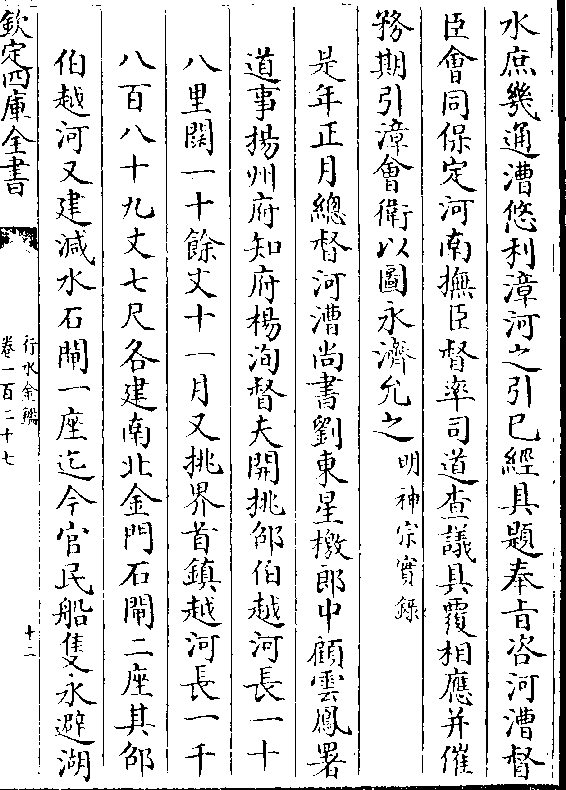 水庶幾通漕悠利漳河之引已經具題奉㫖咨河漕督
臣會同保定河南撫臣督率司道查議具覆相應并催
務期引漳會衛以圖永濟允之明神宗實錄
是年正月總督河漕尚書劉東星檄郎中顧雲鳳署
道事揚州府知府楊洵督夫開挑邵伯越河長一十
八里闊一十餘丈十一月又挑界首鎮越河長一千
八百八十九丈七尺各建南北金門石閘二座其邵
伯越河又建減水石閘一座迄今官民船隻永避湖
欽定四庫全書
行水金鑑
卷一百二十七
十二